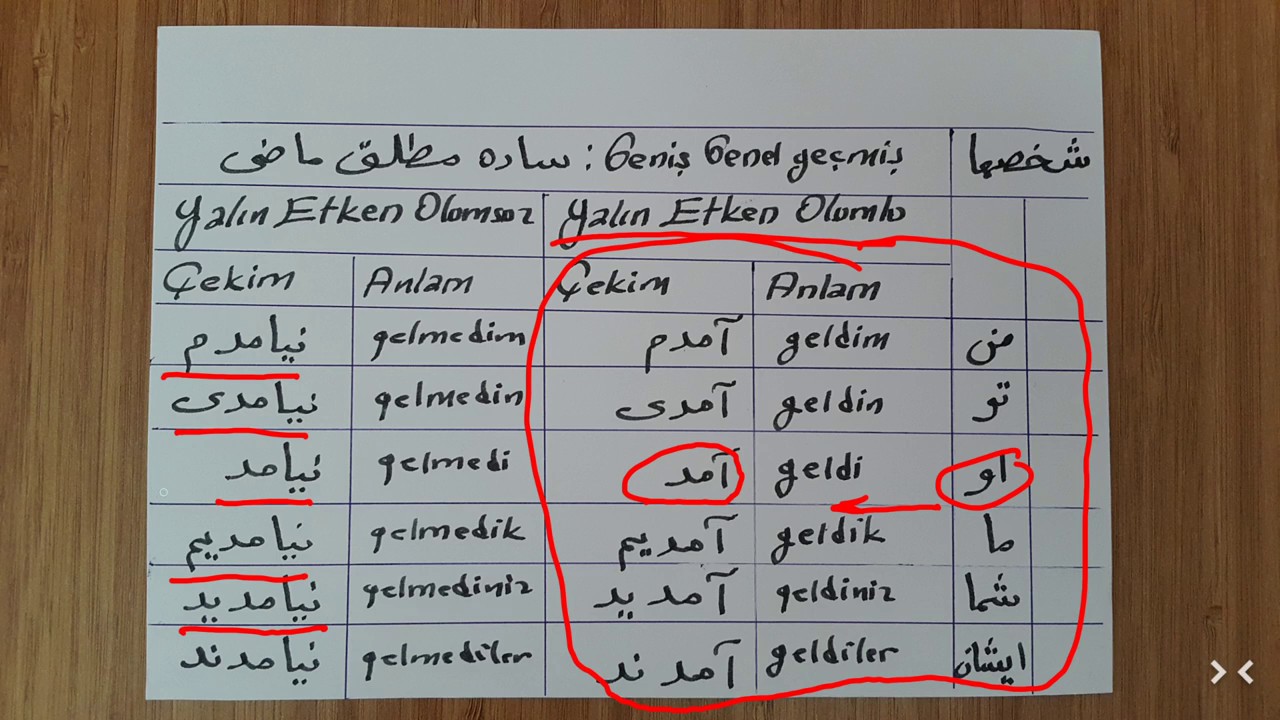 شخصها Geniş Genel geçmiş : ساده مطلق ماضی
Yalın Etken Olumsuz Yalın Etken Olumlu
Çekim Anlam Çekim Anlam
نیامدم gelmedim آمدم geldim من
نیامدی gelmedin آمدی geldin تو
نیامد gelmedi آمد geldi او
نیامدیم gelmedik آمدیم geldik ما
نیامدید gelmediniz آمدید geldiniz شما
نیامدند gelmediler آمدند geldiler ایشان